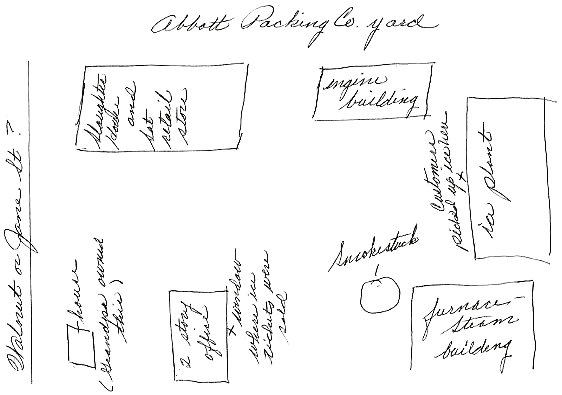 Abbott Packing Co. yard
Walnut or Jane St ?
Slaughter
House
and
retail
store
engine
building
Customers
picked up ice here
ice plant
Smokestack
furnace-
Steam
building
house
(Grandpa owned
this)
2 story
office
window
where ice
tickets were
sold